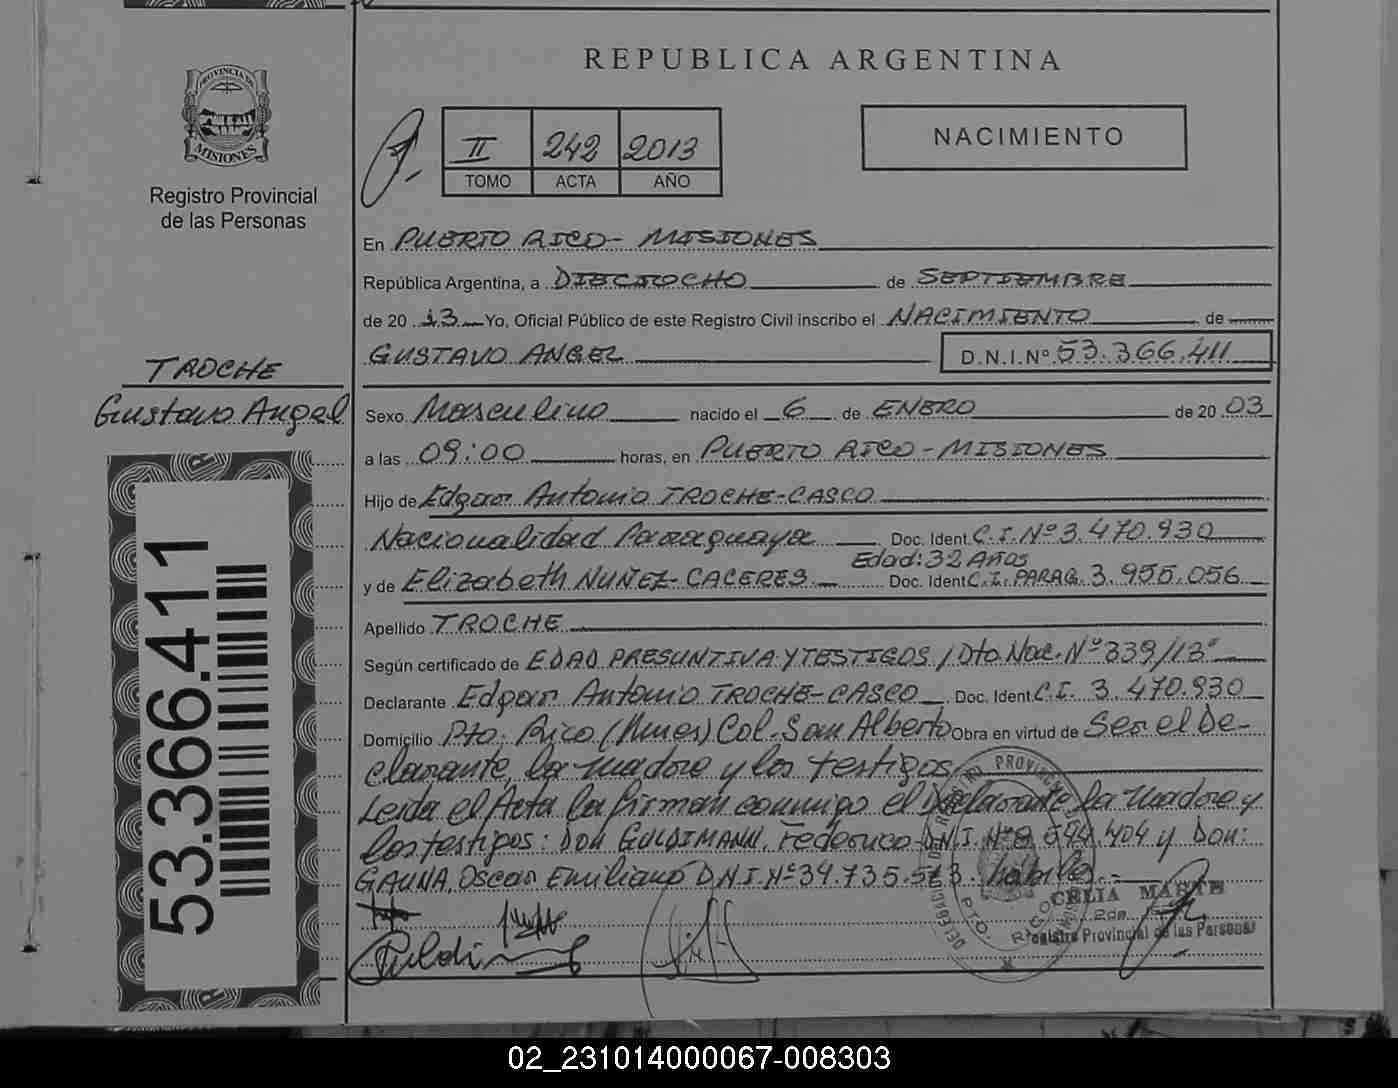 REPUBLICA ARGENTINA
PROVINCIA DE
MISIONES
Registro Provincial
de las Personas
II 242 2013
TOMO ACTA AÑO
NACIMIENTO
En PUERTO RICO- MISIONES
República Argentina, a DIECIOCHO de SEPTIEMBRE
de 20 13 Yo, Oficial Público de este Registro Civil inscribo el NACIMIENTO de
GUSTAVO ANGEL D.N.I.Nº 53.366.411
TROCHE
Gustavo Angel
Sexo Masculino nacido el 6 de ENERO de 20 03
a las 09:00 horas, en PUERTO RICO - MISIONES
Hijo de Edgar Antonio TROCHE-CASCO
Nacionalidad Paraguaya Doc. Ident. C.I. Nº 3.470.930
Edad: 32 Años
y de Elizabeth NUÑEZ-CACERES Doc. Ident. C.I. PARAG. 3.955.056
Apellido TROCHE
Según certificado de EDAD PRESUNTIVA Y TESTIGOS / Dto. Nac. Nº 339/13"
Declarante Edgar Antonio TROCHE-CASCO Doc. Ident. C.I. 3.470.930
Domicilio Pto. Rico (Mnes) Col. San Alberto Obra en virtud de Ser el De-
clarante, la madre y los testigos
Leida el Acta la firman conmigo el Declarante la madre y
los testigos: Don GULDIMANN, Federico D.N.I. Nº 8. 404 y Don:
GAUNA, Oscar Emiliano D.N.I. Nº 34.735.513
CELIA
Registro Provincial de las Personas
53.366.411
02_231014000067-008303